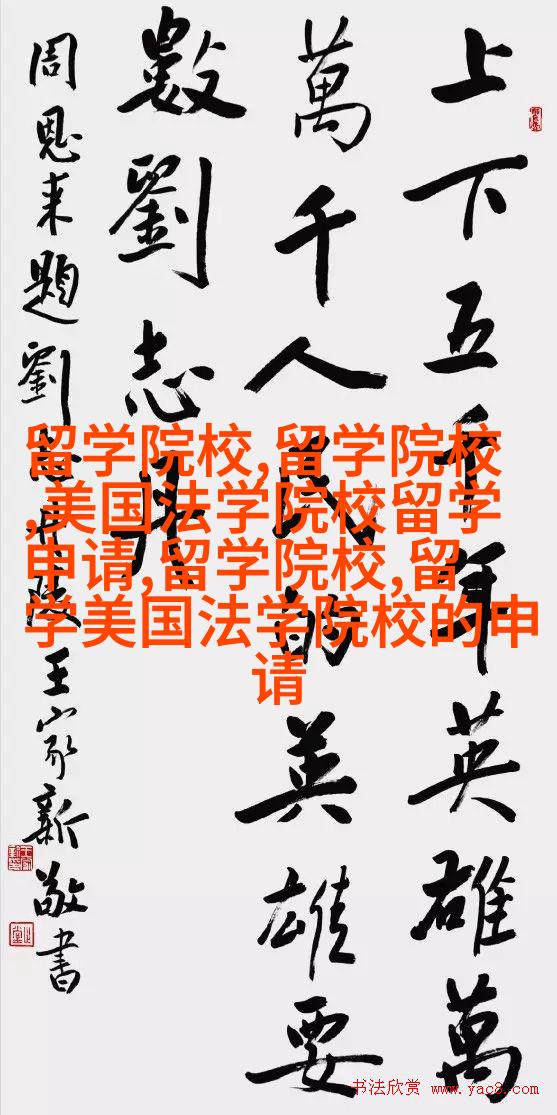 上下五千年英雄萬
萬千人民的英雄要
數劉志丹
周恩来題劉志丹陵王家新敬書
留学院校,留学院校
,美国法学院校留学
申请,留学院校,留
学美国法学院校的申
请
书法欣赏 www.yac8.com